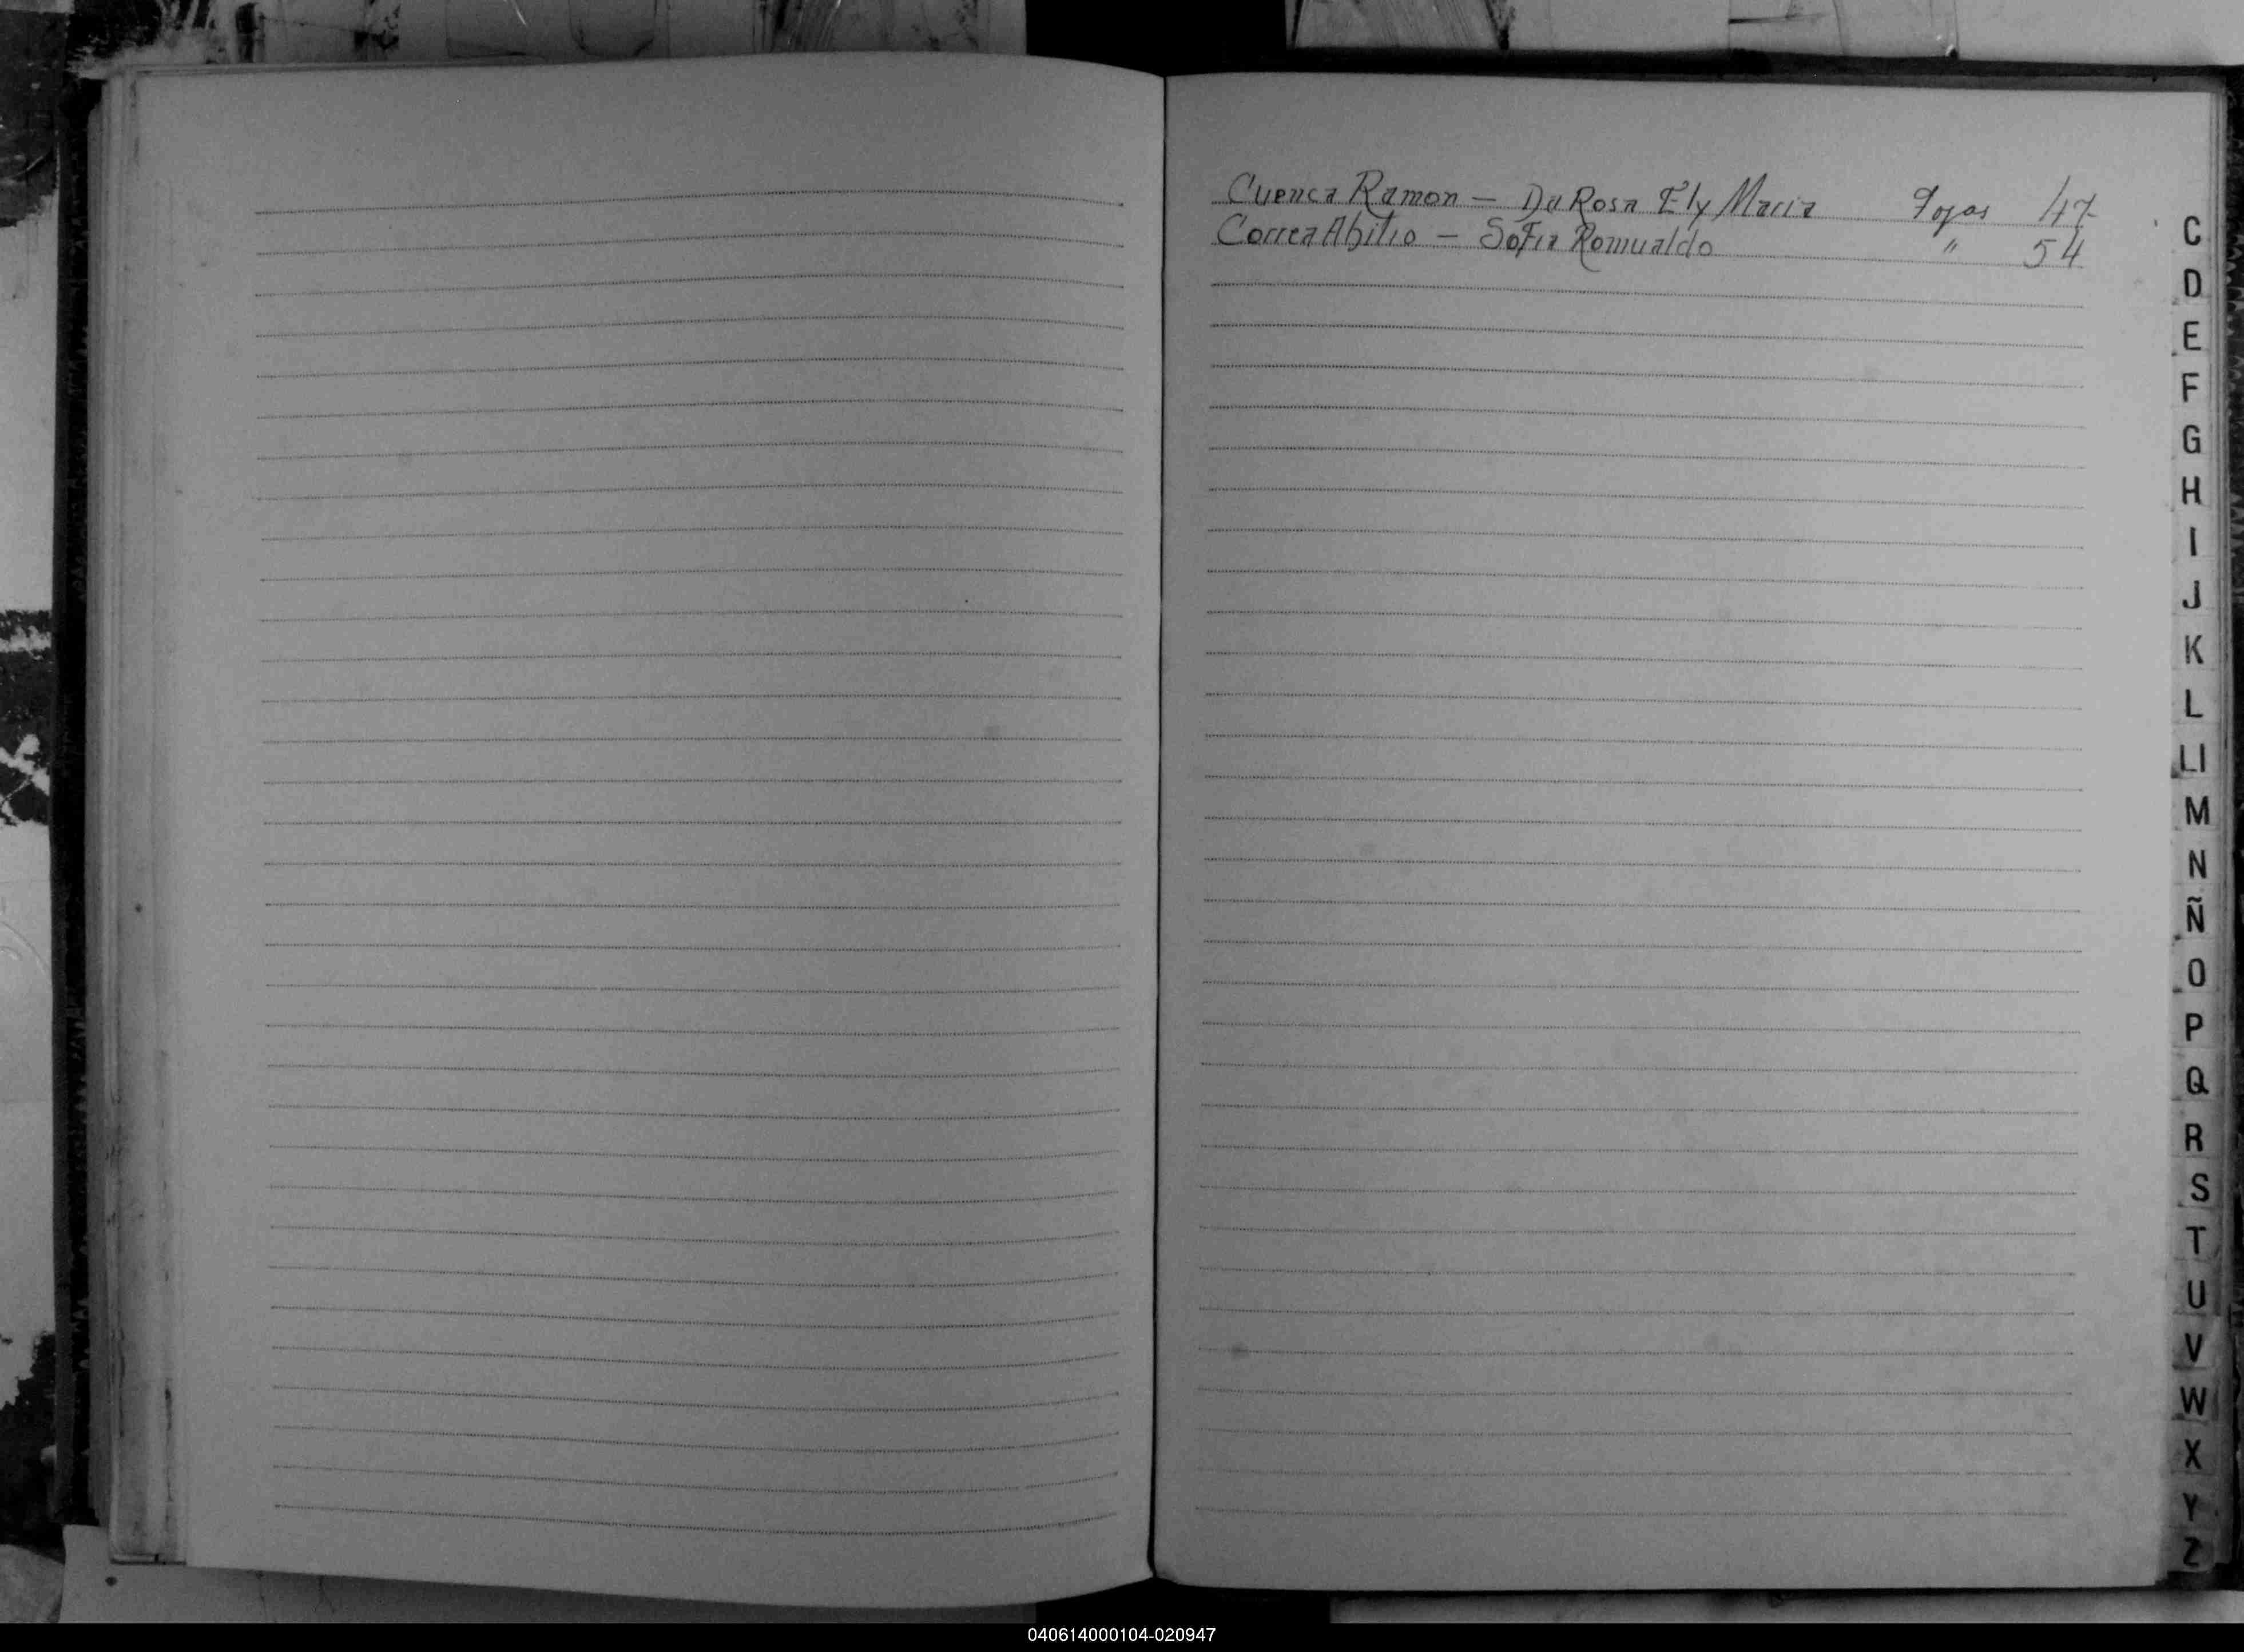 Cuenca Ramon — Da Rosa Ely Maria Fojas 47
Correa Abilio — Sofia Romualdo " 54
C
D
E
F
G
H
I
J
K
L
Ll
M
N
Ñ
O
P
Q
R
S
T
U
V
W
X
Y
Z
040614000104-020947